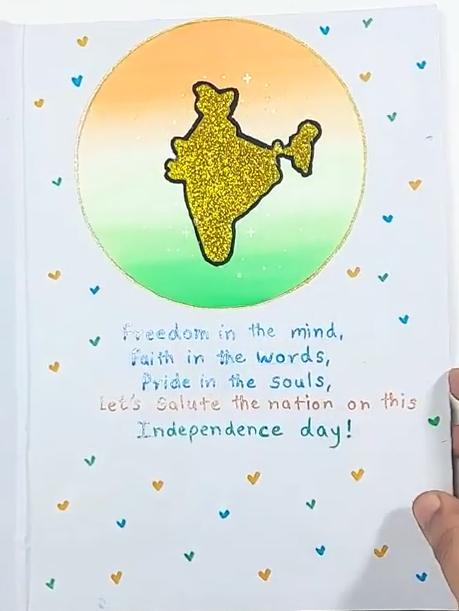 Freedom in the mind,
Faith in the words,
Pride in the souls,
Let's Salute the nation on this
Independence day!